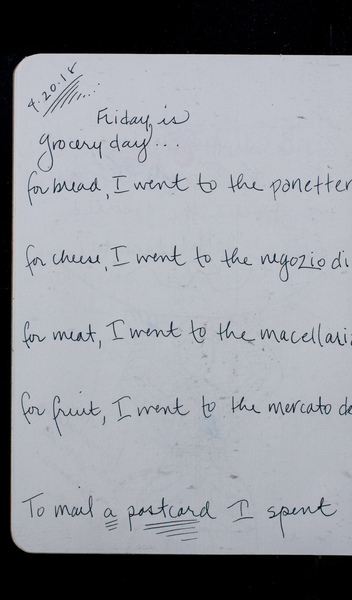 4.20.18
Friday is
grocery day...
for bread, I went to the panetter
for cheese, I went to the negozio di
for meat, I went to the macellari
for fruit, I went to the mercato de
To mail a postcard I spent